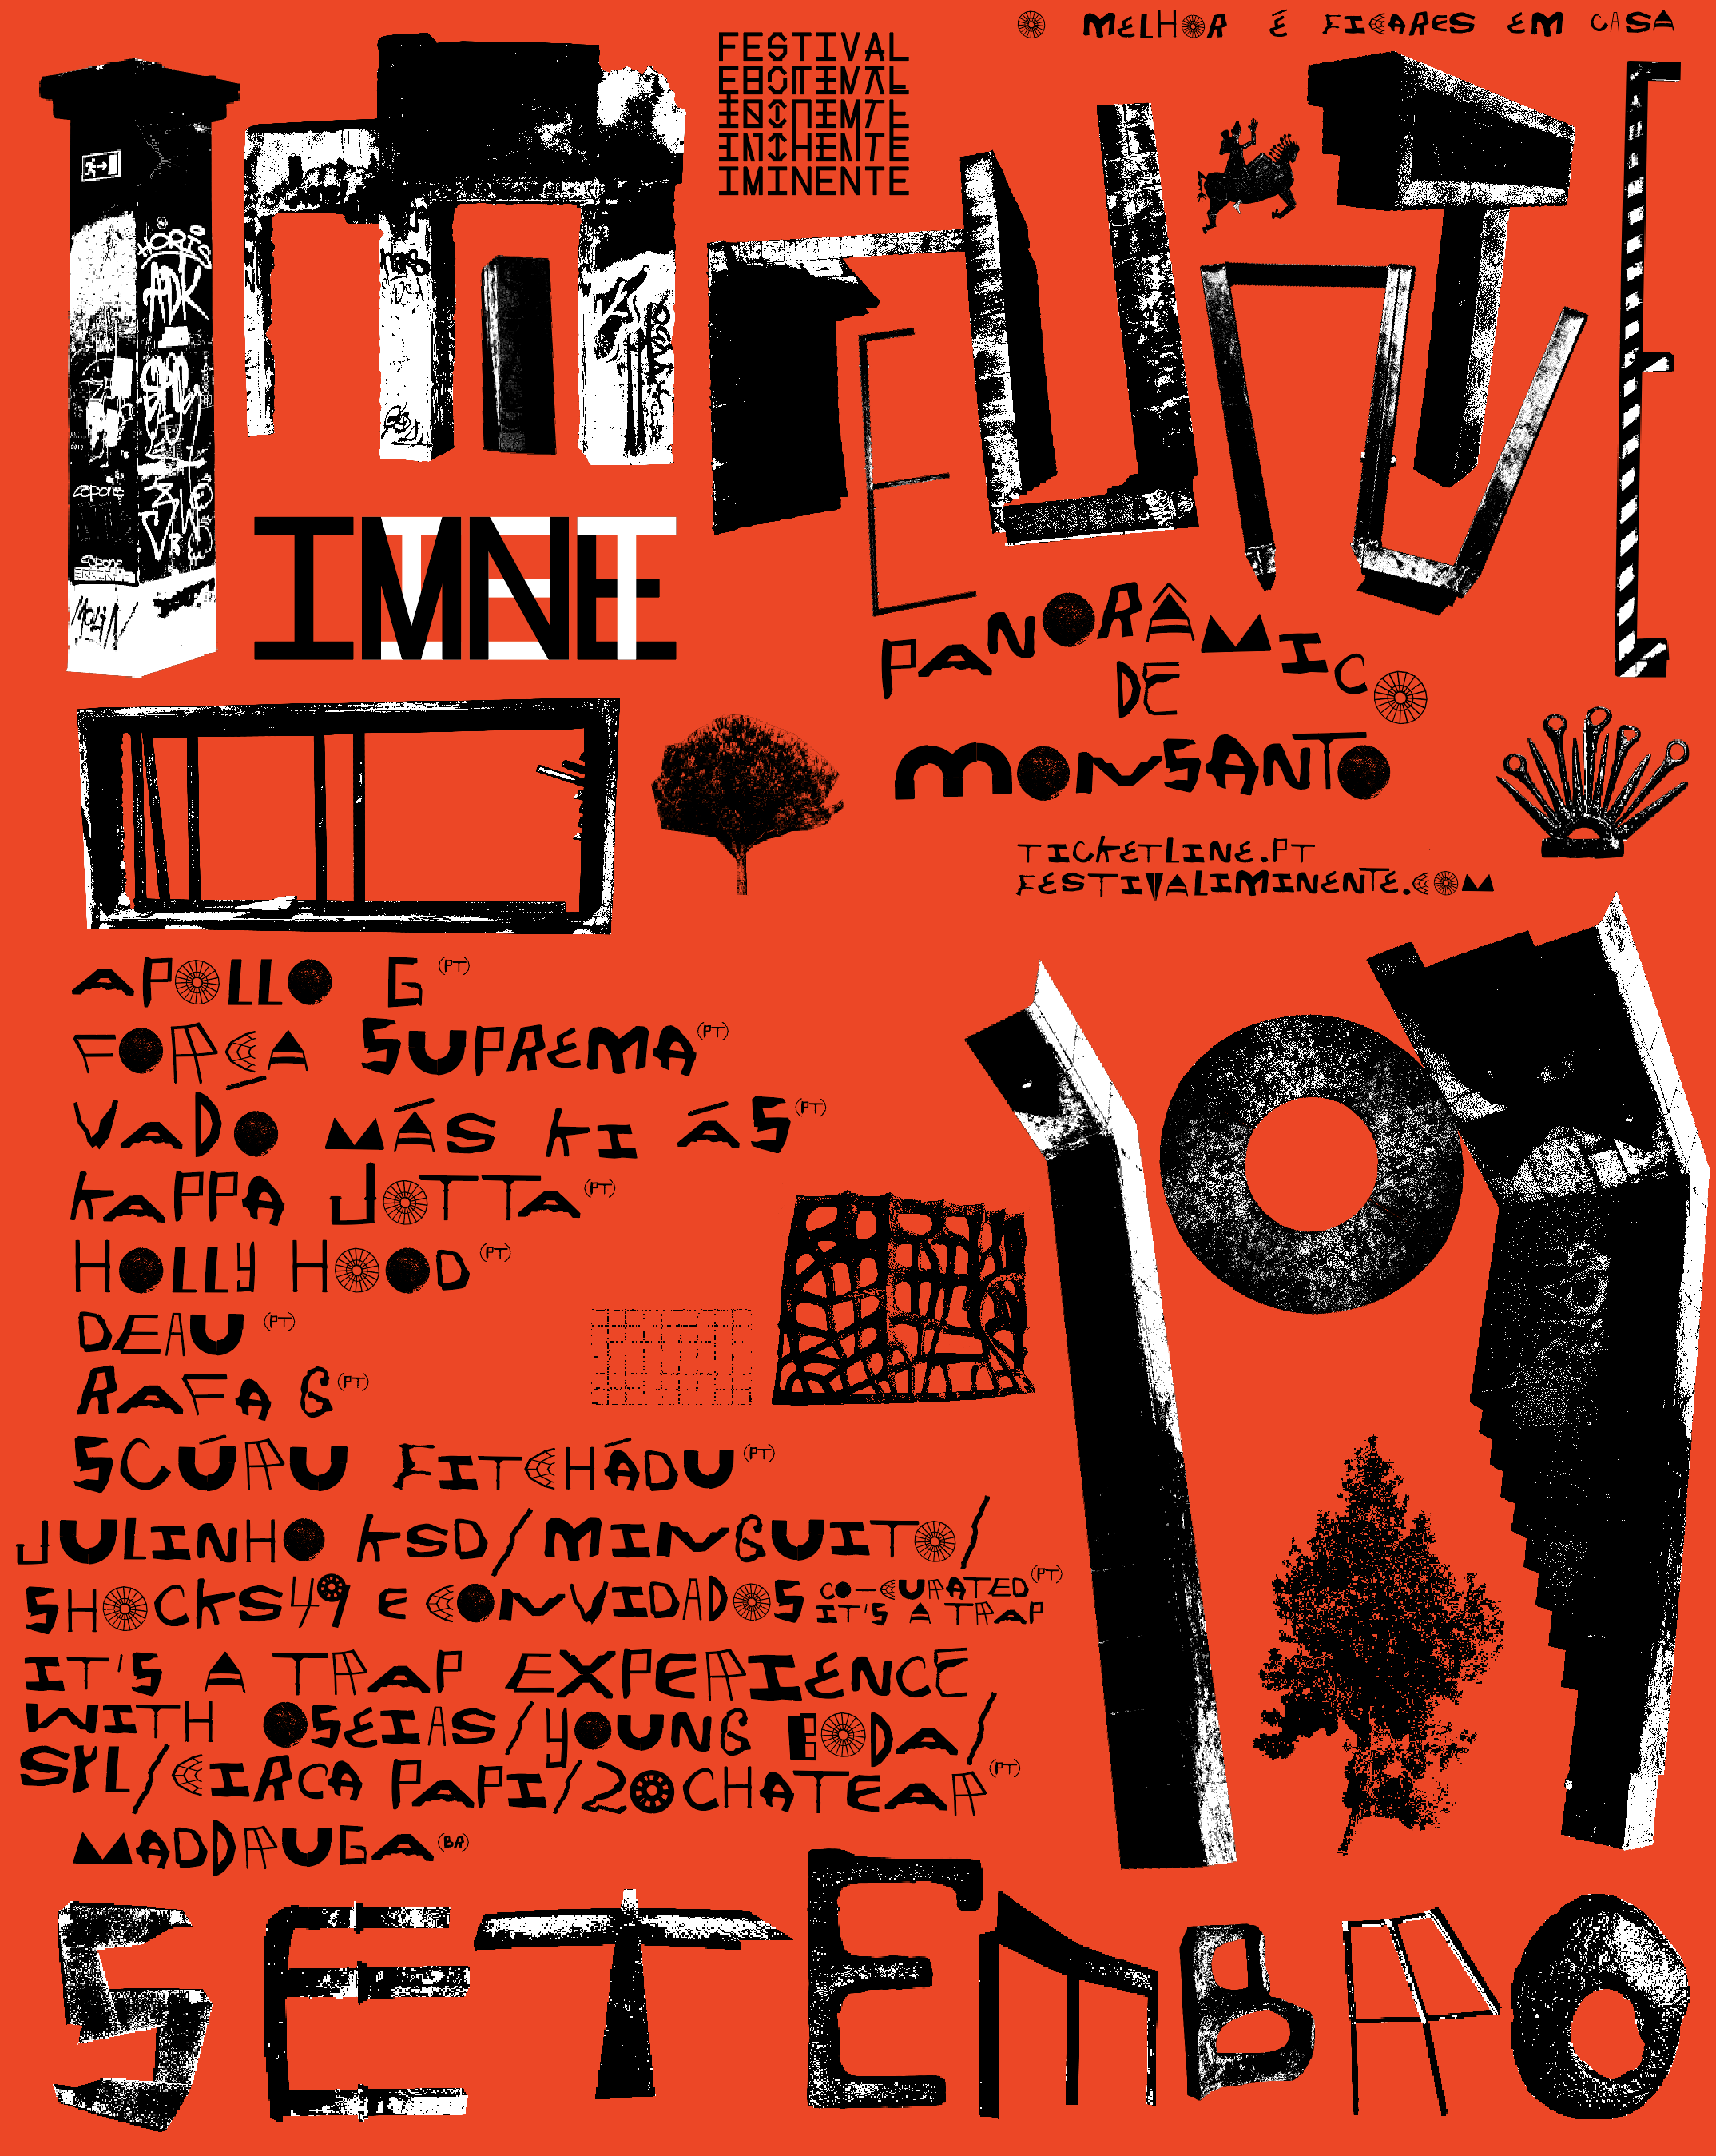 O MELHOR É FICARES EM CASA
FESTIVAL
IMINENTE
IMINENTE
PANORÂMICO
DE
MONSANTO
TICKETLINE.PT
FESTIVALIMINENTE.COM
APOLLO G (PT)
FORÇA SUPREMA (PT)
VADO MÁS KI ÁS (PT)
KAPPA JOTTA (PT)
HOLLY HOOD (PT)
DEAU (PT)
RAFA G (PT)
SCÚRU FITCHÁDU (PT)
JULINHO KSD/MINGUITO/
SHOCKS49 E CONVIDADOS CO-CURATED (PT)
IT'S A TRAP
IT'S A TRAP EXPERIENCE
WITH OSEIAS/YOUNG BODA/
SYL/CIRCA PAPI/20CHATEAR (PT)
MADDRUGA (BR)
SETEMBRO